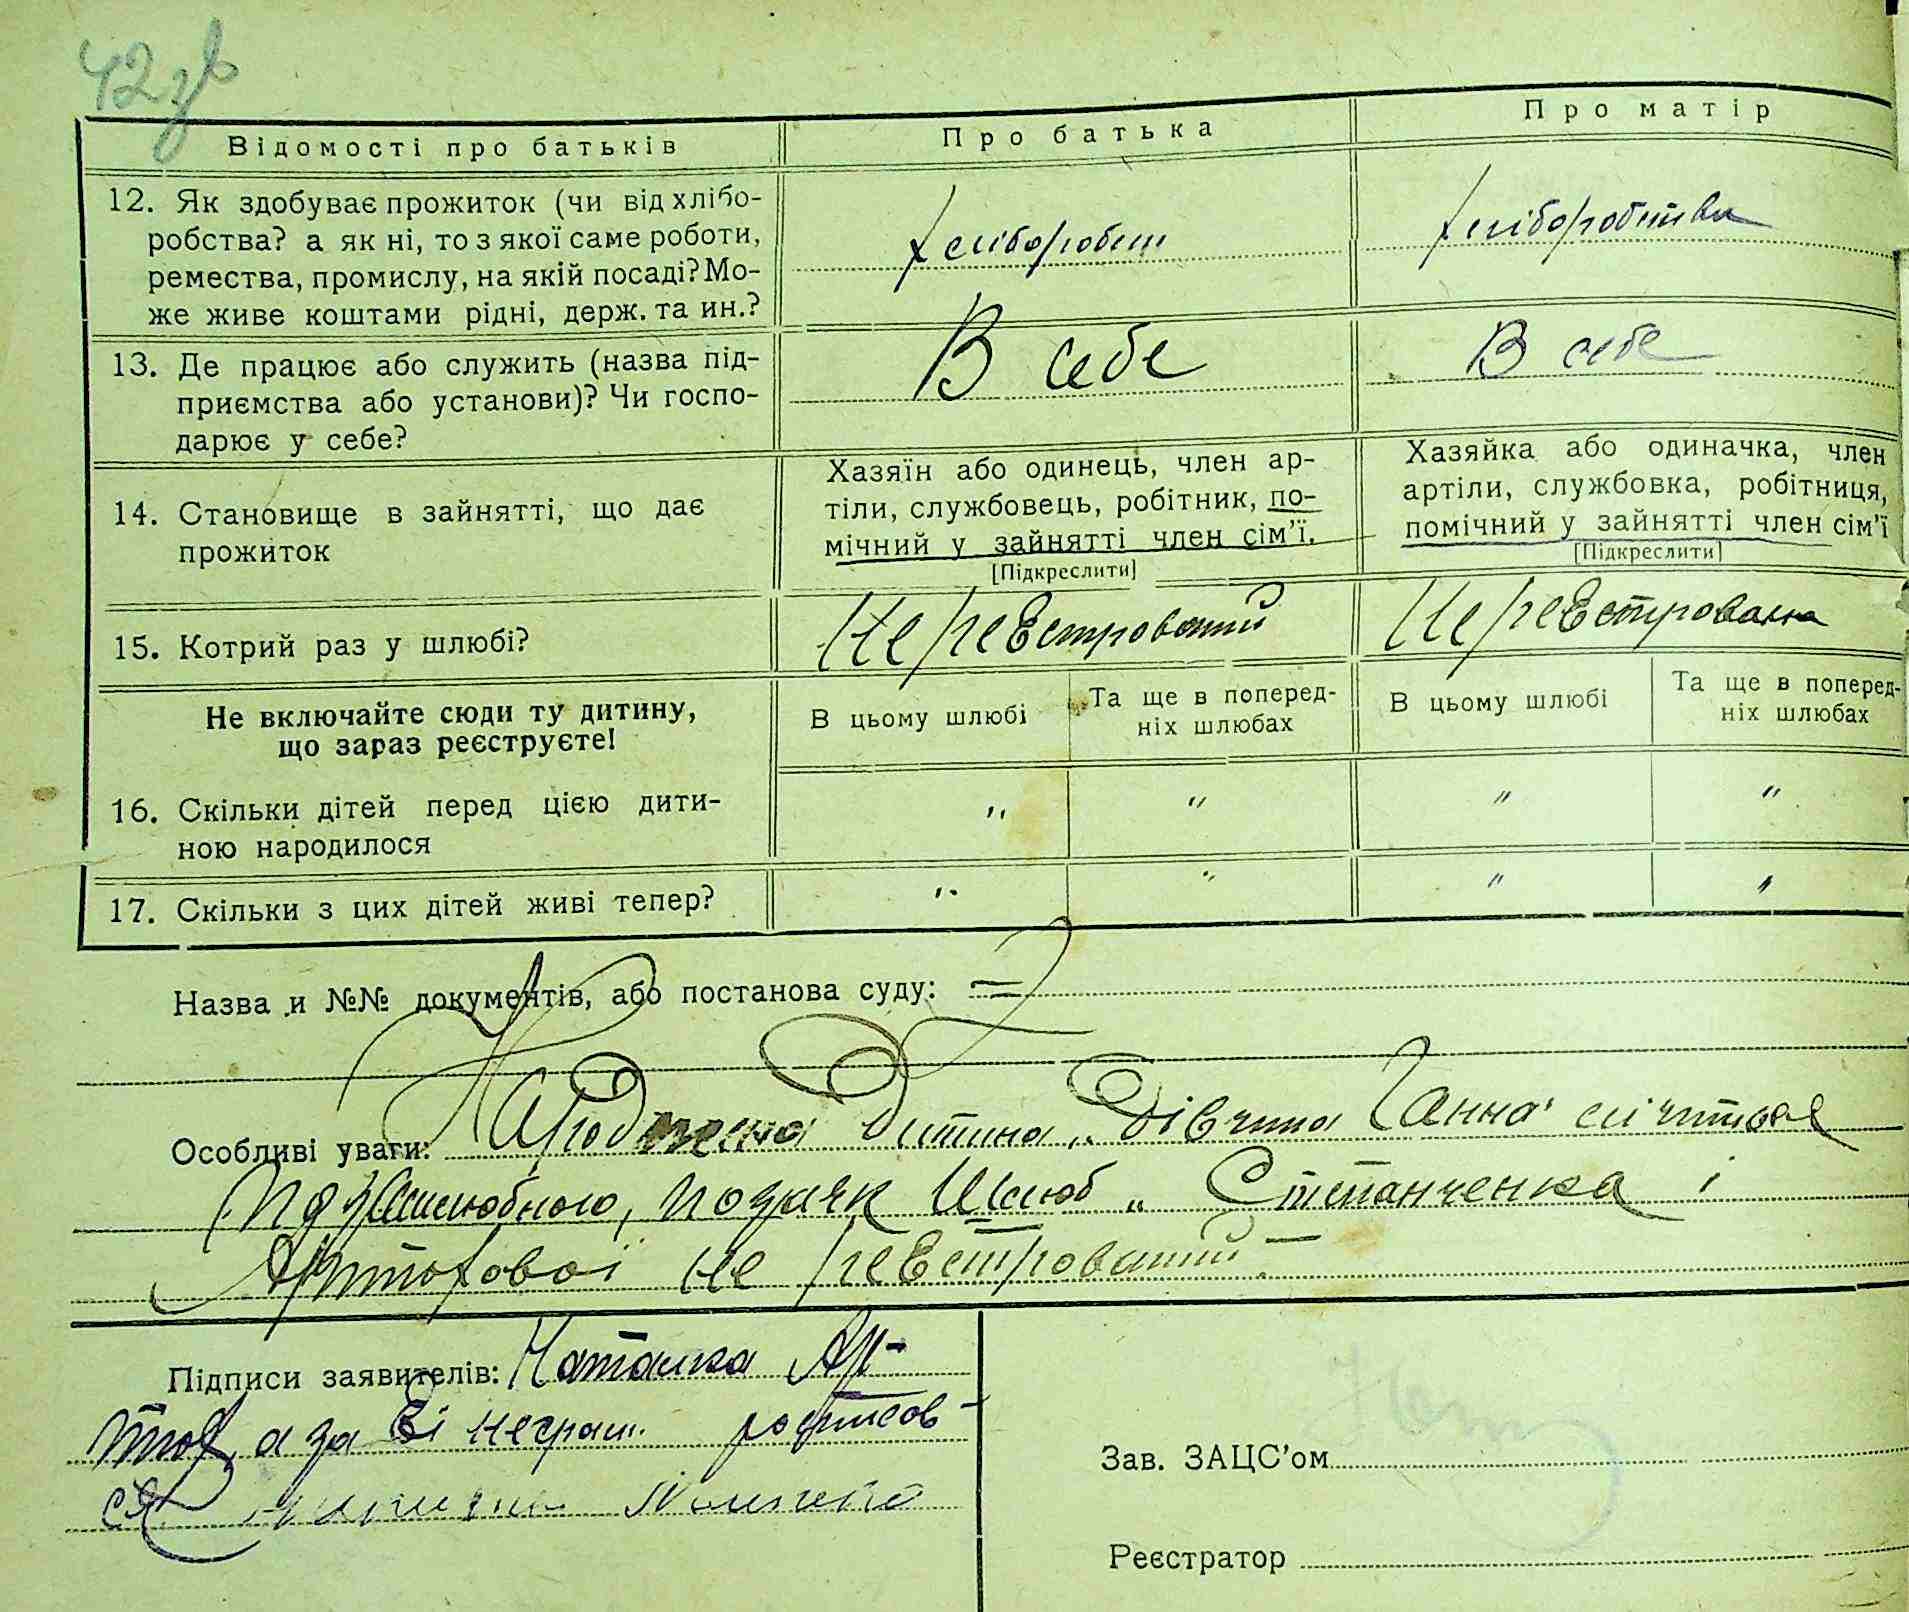 42зв
Відомості про батьків
Про батька
Про матір
12. Як здобуває прожиток (чи від хлібо-
робства? а як ні, то з якої саме роботи,
ремества, промислу, на якій посаді? Мо-
же живе коштами рідні, держ. та ин.?
хлібороб
хліборобства
13. Де працює або служить (назва під-
приємства або установи)? Чи госпо-
дарює у себе?
В себе
В себе
14. Становище в зайнятті, що дає
прожиток
Хазяїн або одинець, член ар-
тіли, службовець, робітник, по-
мічний у зайнятті член сім'ї.
[Підкреслити]
Хазяйка або одиначка, член
артіли, службовка, робітниця,
помічний у зайнятті член сім'ї
[Підкреслити]
15. Котрий раз у шлюбі?
Не реєстрований
Не реєстрована
Не включайте сюди ту дитину,
що зараз реєструєте!
В цьому шлюбі
Та ще в поперед-
ніх шлюбах
В цьому шлюбі
Та ще в поперед-
ніх шлюбах
16. Скільки дітей перед цією дити-
ною народилося
" " " "
17. Скільки з цих дітей живі тепер?
" " " "
Назва и №№ документів, або постанова суду: =
Особливі уваги: Народжена дитина „Дівчина Ганна" считаєт
позашлюбного, позаяк Шлюб „Степанченка і
не реєстрований. —
Підписи заявителів: Наталка Ар-
а за її неграм. розписов-
ся
Зав. ЗАЦС'ом
Реєстратор